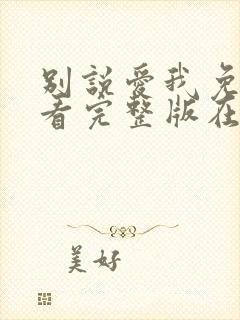 別說愛我免
看完整版在
美好